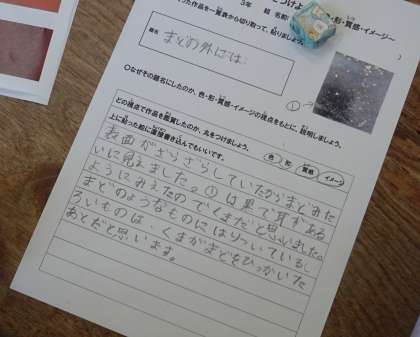 3年 組 名前
った作品を一覧表から切り取って、貼りましょう。
色・形・質感・イメージ〜
題名
まどの外には
○なぜその題名にしたのか、色・形・質感・イメージの視点をもとに、説明しましょう。
①
どの視点で作品を鑑賞したのか、丸をつけましょう。
色 形 質感 イメージ
上に貼った絵に直接書き込んでもいいです。
表面がざらざらしていたからまどみた
いに見えました。①は黒で耳がある
ようにみえたのでくまだと思いました。
まどのようなものにはりついているし
ろいものは、くまがまどをひっかいた
あとだと思います。